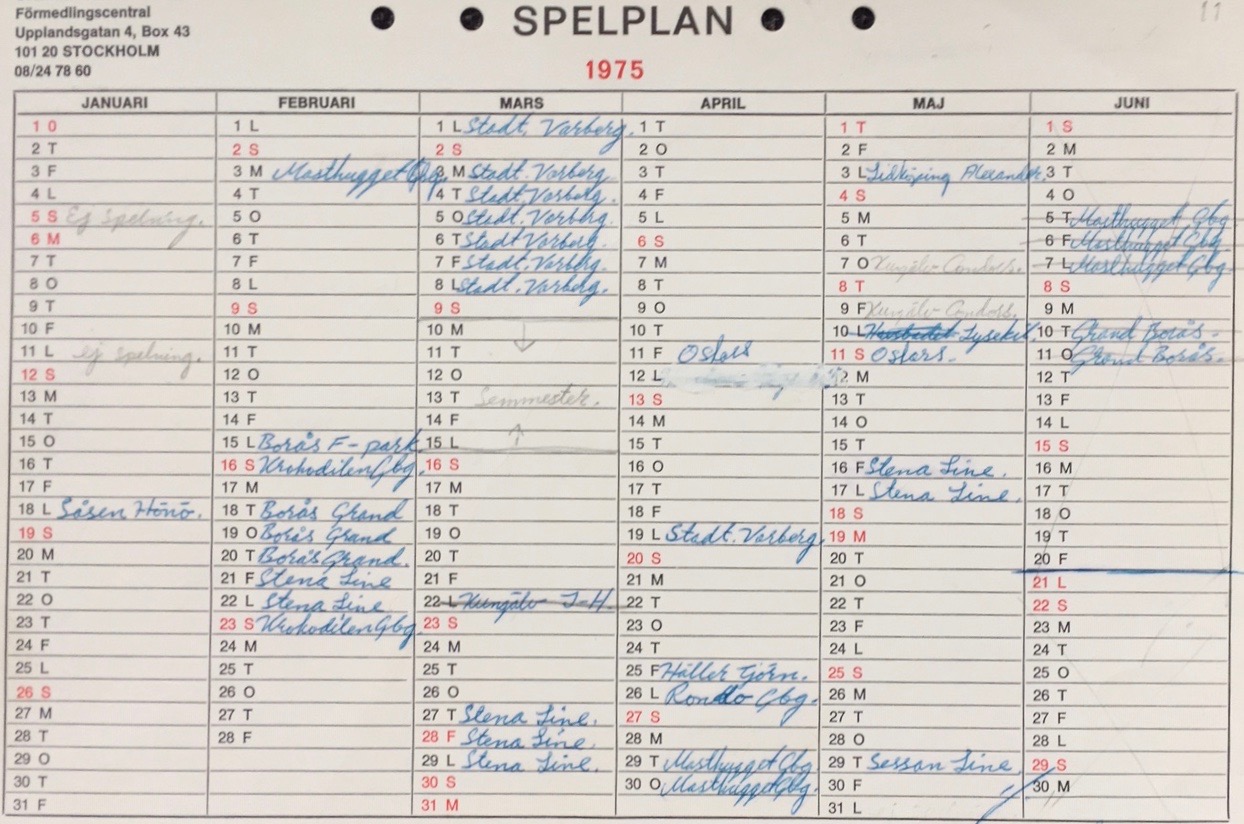 Förmedlingscentral
Upplandsgatan 4, Box 43
101 20 STOCKHOLM
08/24 78 60
SPELPLAN
11
1975
JANUARI
1 O
2 T
3 F
4 L
5 S Ej spelning.
6 M
7 T
8 O
9 T
10 F
11 L ej spelning.
12 S
13 M
14 T
15 O
16 T
17 F
18 L Såsen Hönö.
19 S
20 M
21 T
22 O
23 T
24 F
25 L
26 S
27 M
28 T
29 O
30 T
31 F
FEBRUARI
1 L
2 S
3 M Masthugget Gbg.
4 T
5 O
6 T
7 F
8 L
9 S
10 M
11 T
12 O
13 T
14 F
15 L Borås F-park
16 S Krokodilen Gbg.
17 M
18 T Borås Grand
19 O Borås Grand
20 T Borås Grand.
21 F Stena Line
22 L Stena Line
23 S Krokodilen Gbg.
24 M
25 T
26 O
27 T
28 F
MARS
1 L Stadt, Varberg.
2 S
3 M Stadt. Varberg
4 T Stadt. Varberg.
5 O Stadt. Varberg.
6 T Stadt Varberg.
7 F Stadt. Varberg.
8 L Stadt. Varberg.
9 S
10 M
11 T
12 O
13 T Semmester.
14 F
15 L
16 S
17 M
18 T
19 O
20 T
21 F
22 L Kungälv J-H.
23 S
24 M
25 T
26 O
27 T Stena Line.
28 F Stena Line.
29 L Stena Line.
30 S
31 M
APRIL
1 T
2 O
3 T
4 F
5 L
6 S
7 M
8 T
9 O
10 T
11 F Oskars
12 L
13 S
14 M
15 T
16 O
17 T
18 F
19 L Stadt. Varberg.
20 S
21 M
22 T
23 O
24 T
25 F Häller Tjörn.
26 L Rondo Gbg.
27 S
28 M
29 T Masthugget Gbg
30 O Masthugget Gbg.
MAJ
1 T
2 F
3 L Lidköping Alexander.
4 S
5 M
6 T
7 O Kungälv-Condoss.
8 T
9 F Kungälv-Condoss.
10 L Lysekil.
11 S Oskars.
12 M
13 T
14 O
15 T
16 F Stena Line.
17 L Stena Line.
18 S
19 M
20 T
21 O
22 T
23 F
24 L
25 S
26 M
27 T
28 O
29 T Sessan Line.
30 F
31 L
JUNI
1 S
2 M
3 T
4 O
5 T Masthugget Gbg
6 F Masthugget Gbg.
7 L Masthugget Gbg.
8 S
9 M
10 T Grand Borås.
11 O Grand Borås.
12 T
13 F
14 L
15 S
16 M
17 T
18 O
19 T
20 F
21 L
22 S
23 M
24 T
25 O
26 T
27 F
28 L
29 S
30 M